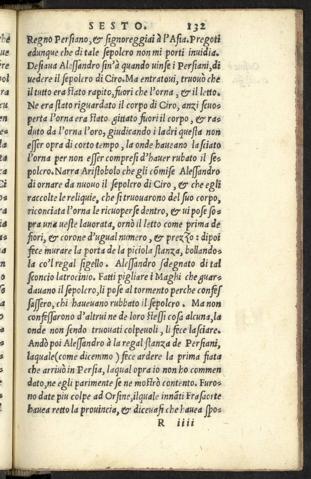 SESTO. 132
Regno Persiano, & signoreggiai à l'Asia. Pregoti
adunque che di tale sepolcro non mi porti inuidia.
Desiaua Alessandro sin'à quando uinse i Persiani, di
uedere il sepolcro di Ciro. Ma entratoui, trouò che
il tutto era stato rapito, fuori che l'orna, & il letto.
Ne era stato riguardato il corpo di Ciro, anzi scuo
perta l'orna era stato gittato fuori il corpo, & ra-
duto da l'orna l'oro, giudicando i ladri questa non
esser opra di corto tempo, la onde haueano lasciato
l'orna per non esser compresi d'hauer rubato il se-
polcro. Narra Aristobolo che gli cõmise Alessandro
di ornare da nuouo il sepolcro di Ciro, & che egli
raccolte le reliquie, che si trouarono del suo corpo,
riconciata l'orna le ricuoperse dentro, & ui pose so-
pra una ueste lauorata, ornò il letto come prima de
fiori, & corone d'ugual numero, & prezzo: dipoi
fece murare la porta de la picciola stanza, bollando-
la co'l regal sigello. Alessandro sdegnato di tal
sconcio latrocinio. Fatti pigliare i Maghi che guar-
dauano il sepolcro, li pose al tormento perche confes
sassero, chi haueuano rubbato il sepolcro. Ma non
confessarono d'altrui ne de loro stessi cosa alcuna, la
onde non sendo trouati colpeuoli, li fece lasciare.
Andò poi Alessandro à la regal stanza de Persiani,
laquale (come dicemmo) fece ardere la prima fiata
che arriuò in Persia, laqual opra io non ho commen
dato, ne egli parimente se ne mostrò contento. Furo-
no date piu colpe ad Orsine, ilquale innãti Frasaorte
hauea retto la prouincia, & diceuasi che hauea spo-
R iiii